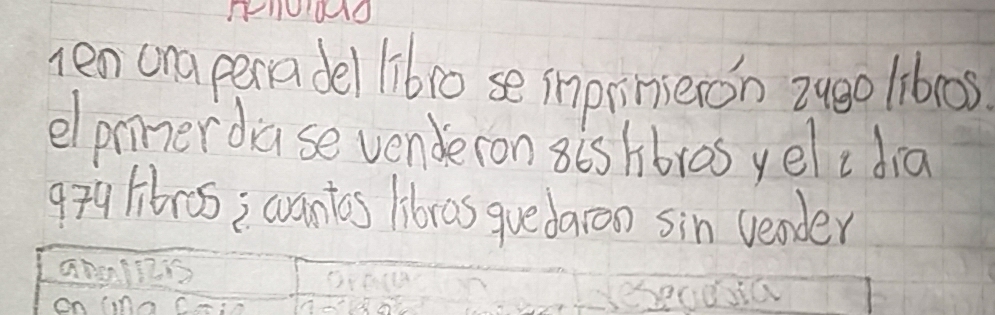 Actividad
1 en una feria del libro se imprimierón 2480 libros.
el primer dia se venderon 865 libros y el 2 dia
979 libros ¿ cuantos libros quedaron sin vender
analizis
en una